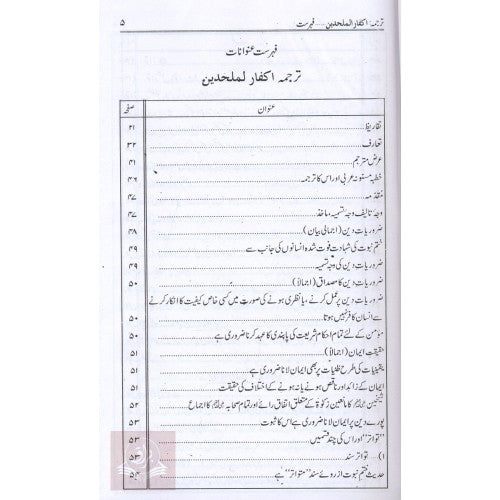 ترجمہ: اکفار الملحدین..... فہرست ۵
فہرست عنوانات
ترجمہ اکفار لملحدین
عنوان صفحہ
تقاریظ ۲۱
تعارف ۳۲
عرض مترجم ۴۱
خطبہ مسنونہ عربی اور اس کا ترجمہ ۴۶
مقدمہ ۴۷
وجہ تالیف وجہ تسمیہ ماخذ ۴۷
ضروریات دین (اجمالی بیان) ۴۸
ختم نبوت کی شہادت فوت شدہ انسانوں کی جانب سے ۴۹
ضروریات دین کی وجہ تسمیہ ۴۹
ضروریات دین کا مصداق (اجمالاً) ۵۰
ضروریات دین پر عمل کرنے، یا نظری ہونے کی صورت میں کسی خاص کیفیت کا انکار کرنے
سے انسان کافر نہیں ہوتا ۵۰
مؤمن کے لئے تمام احکام شریعت کی پابندی کا عہد کرنا ضروری ہے ۵۰
حقیقت ایمان (اجمالاً) ۵۱
یقینیات کی طرح ظنیات پر بھی ایمان لانا ضروری ہے ۵۱
ایمان کے زائد اور ناقص ہونے یا نہ ہونے کے اختلاف کی حقیقت ۵۱
شیخین کا مانعین زکوٰۃ کے متعلق اتفاق رائے اور تمام صحابہ کا اجماع ۵۲
پورے دین پر ایمان لانا ضروری ہے اس کا ثبوت ۵۳
"تواتر" اور اس کی چند قسمیں ۵۳
۱) تواتر سند ۵۳
حدیث ختم نبوت از روئے سند "متواتر" ہے ۵۴